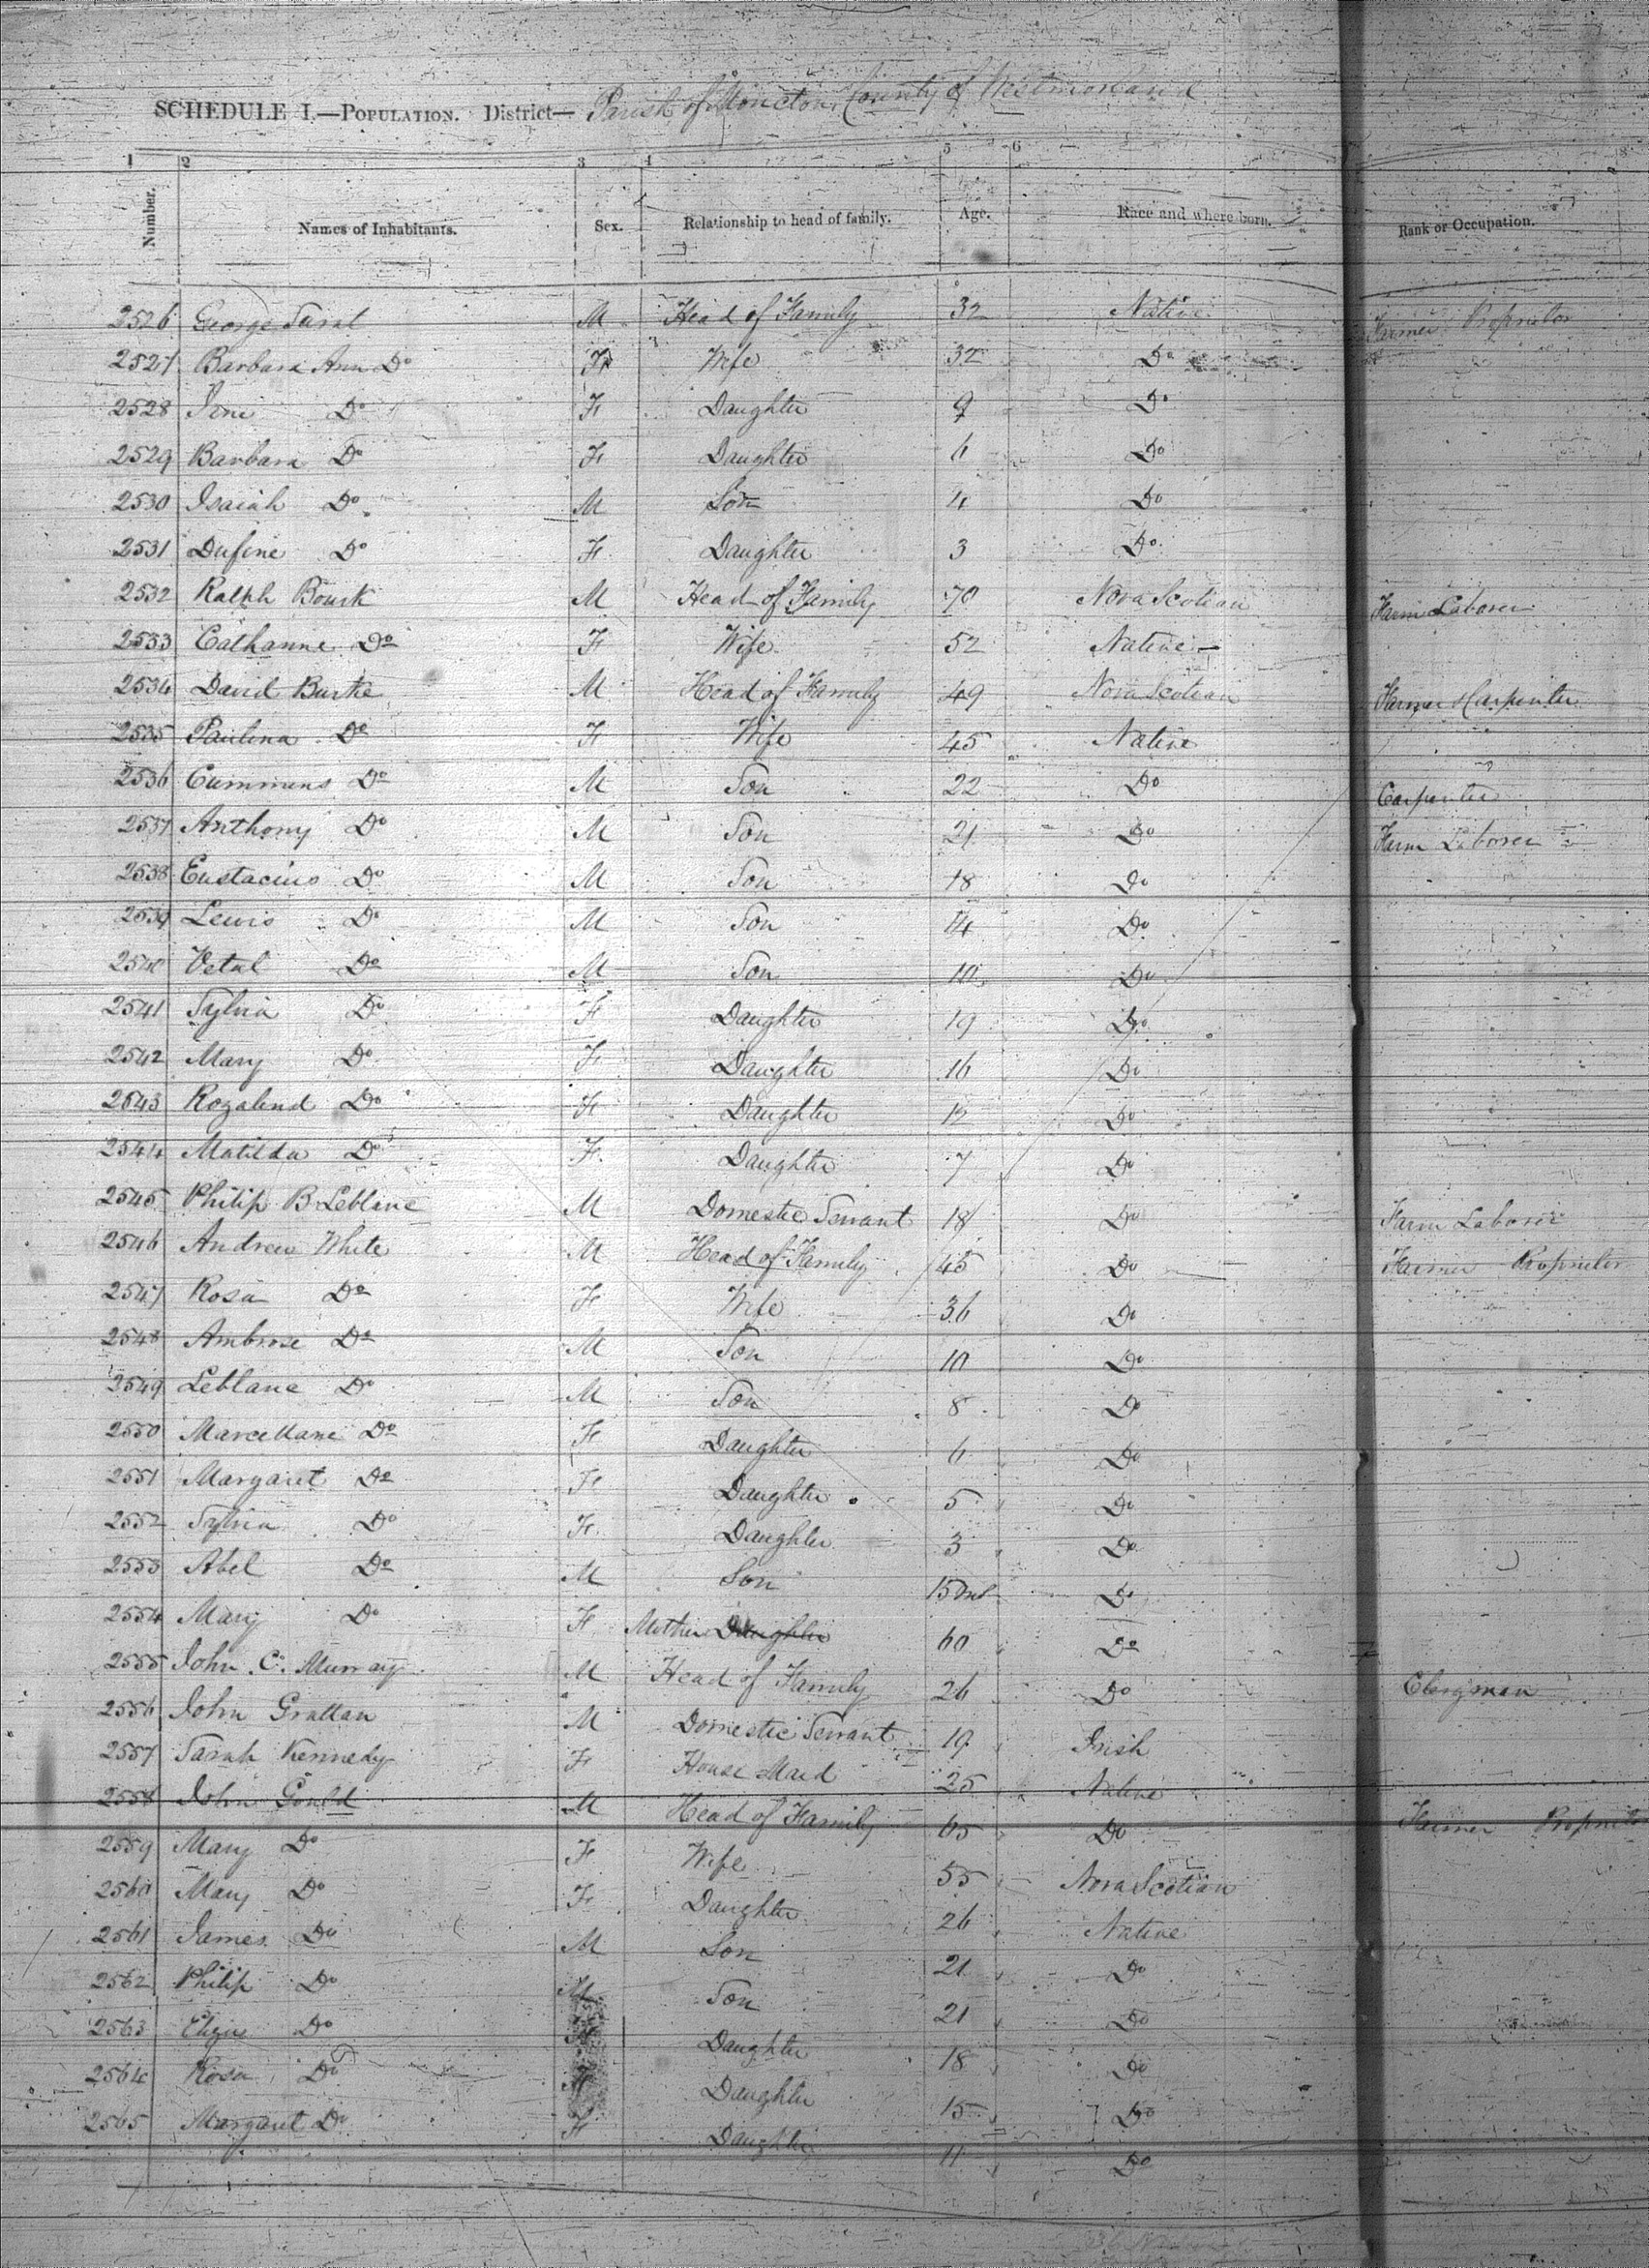 SCHEDULE I.—POPULATION. District— Parish of Moncton, County of Westmorland
1 2 3 4 5 6 8
Number. Names of Inhabitants. Sex. Relationship to head of family. Age. Race and where born. Rank or Occupation.
2526 George M Head of Family 32 Native Farmer Proprietor
2527 Barbara Ann Do F Wife 32 Do
2528 Do F Daughter 9 Do
2529 Barbara Do F Daughter 6 Do
2530 Isaiah Do M Son 4 Do
2531 Dufine Do F Daughter 3 Do
2532 Ralph Bourk M Head of Family 70 Nova Scotian Farm Laborer
2533 Catharine Do F Wife 52 Native
2534 David Burke M Head of Family 49 Nova Scotian Farmer & Carpenter
2535 Paulina Do F Wife 45 Native
2536 Cummins Do M Son 22 Do Carpenter
2537 Anthony Do M Son 21 Do Farm Laborer
2538 Eustacius Do M Son 18 Do
2539 Lewis Do M Son 14 Do
2540 Vetal Do M Son 10 Do
2541 Sylvia Do F Daughter 19 Do
2542 Mary Do F Daughter 16 Do
2543 Rozalind Do F Daughter 12 Do
2544 Matilda Do F Daughter 7 Do
2545 Philip B Leblanc M Domestic Servant 18 Do Farm Laborer
2546 Andrew White M Head of Family 45 Do Farmer Proprietor
2547 Rosa Do F Wife 36 Do
2548 Ambrose Do M Son 10 Do
2549 Leblanc Do M Son 8 Do
2550 Marcellane Do F Daughter 6 Do
2551 Margaret Do F Daughter 5 Do
2552 Sylvia Do F Daughter 3 Do
2553 Abel Do M Son 15 Do
2554 Mary Do F Mother Daughter 60 Do
2555 John C. Murray M Head of Family 26 Do Clergman
2556 John Grattan M Domestic Servant 19 Irish
2557 Sarah Kennedy F House Maid 25 Native
2558 John Gould M Head of Family 65 Do Farmer Proprietor
2559 Mary Do F Wife 55 Nova Scotian
2560 Mary Do F Daughter 26 Native
2561 James Do M Son 21 Do
2562 Philip Do M Son 21 Do
2563 Do Daughter 18 Do
2564 Rosa Do F Daughter 15 Do
2565 Margaret Do F Daughter 11 Do